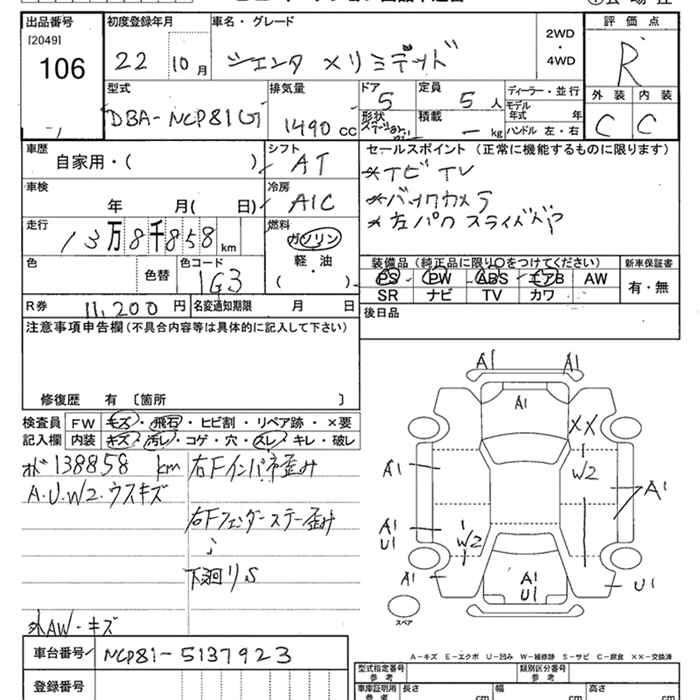 出品番号 初度登録年月 車名・グレード 評価点
[2049]
106 22 10月 シエンタ メリミテッド 2WD・4WD R
型式 排気量 ドア 定員 ディーラー・並行 外装 内装
DBA-NCP81G 1490 cc 5 5人 モデル年式 年 C C
形状 積載 kg ハンドル 左・右
車歴 シフト セールスポイント (正常に機能するものに限ります)
自家用・( ) AT *ナビTV
車検 冷房 *バックカメラ
年 月( 日) A/C *左パワスライドドア
走行 燃料
13万8千858km ガソリン
軽・油
( )
色 色替 色コード 1G3
装備品 (純正品に限り○をつけてください) 新車保証書
PS PW ABS エアB AW 有・無
SR ナビ TV カワ
R券 11,200円 名変通知期限 月 日 後日品
注意事項申告欄 (不具合内容等は具体的に記入して下さい)
修復歴 有 [箇所 ]
検査員 FW キズ・飛石・ヒビ割・リペア跡・×要
記入欄 内装 キズ・汚レ・コゲ・穴・スレ・キレ・破レ
138858 km 右Fインパネ歪み
A.U.W2.ウスキズ
右Fフェンダーステー歪み
下廻りS
外AW・キズ
車台番号 NCP81-5137923
登録番号
A1 A1
A1
XX
A1 W2 A1
A1
U1 W2
A1 A1
U1 U1
スペア
A-キズ E-エクボ U-凹み W-補修跡 S-サビ C-腐食 XX-交換済
型式指定番号 参考 類別区分番号 参考
車庫証明用 参考 長さ cm 幅 cm 高さ cm